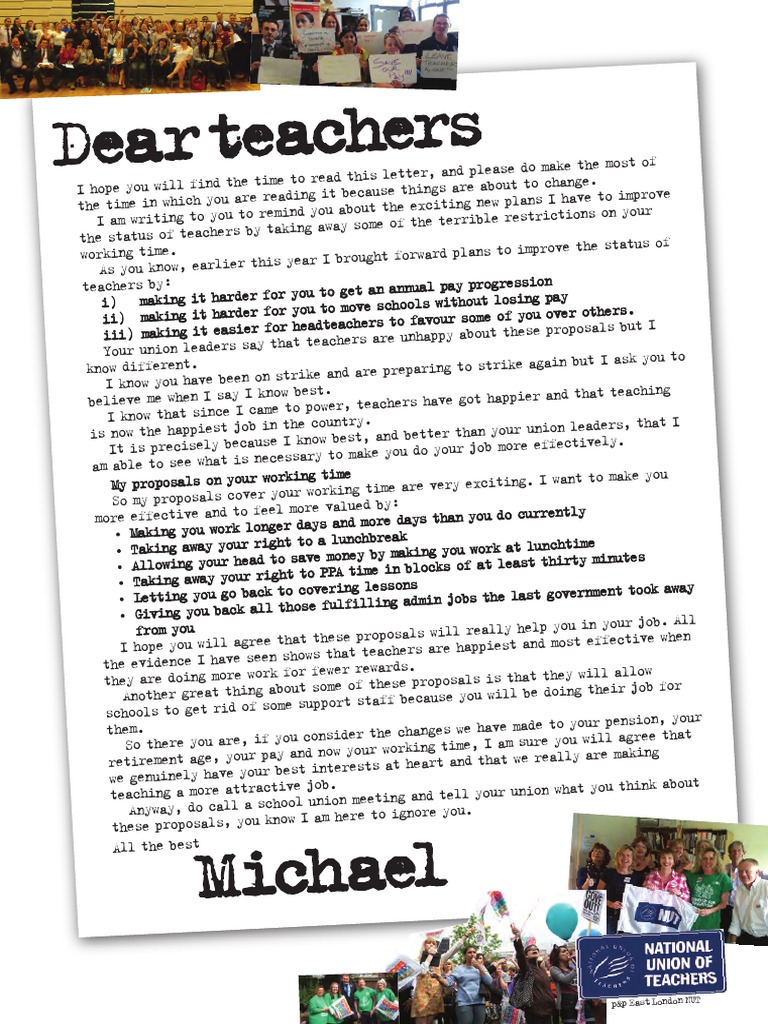 LEAVE
TEACHERS
SAVE
OUR
PAY!!!
Dear teachers
I hope you will find the time to read this letter, and please do make the most of
the time in which you are reading it because things are about to change.
I am writing to you to remind you about the exciting new plans I have to improve
the status of teachers by taking away some of the terrible restrictions on your
working time.
As you know, earlier this year I brought forward plans to improve the status of
teachers by:
i) making it harder for you to get an annual pay progression
ii) making it harder for you to move schools without losing pay
iii) making it easier for headteachers to favour some of you over others.
Your union leaders say that teachers are unhappy about these proposals but I
know different.
I know you have been on strike and are preparing to strike again but I ask you to
believe me when I say I know best.
I know that since I came to power, teachers have got happier and that teaching
is now the happiest job in the country.
It is precisely because I know best, and better than your union leaders, that I
am able to see what is necessary to make you do your job more effectively.
My proposals on your working time
So my proposals cover your working time are very exciting. I want to make you
more effective and to feel more valued by:
• Making you work longer days and more days than you do currently
• Taking away your right to a lunchbreak
• Allowing your head to save money by making you work at lunchtime
• Taking away your right to PPA time in blocks of at least thirty minutes
• Letting you go back to covering lessons
• Giving you back all those fulfilling admin jobs the last government took away
from you
I hope you will agree that these proposals will really help you in your job. All
the evidence I have seen shows that teachers are happiest and most effective when
they are doing more work for fewer rewards.
Another great thing about some of these proposals is that they will allow
schools to get rid of some support staff because you will be doing their job for
them.
So there you are, if you consider the changes we have made to your pension, your
retirement age, your pay and now your working time, I am sure you will agree that
we genuinely have your best interests at heart and that we really are making
teaching a more attractive job.
Anyway, do call a school union meeting and tell your union what you think about
these proposals, you know I am here to ignore you.
All the best
Michael
GOVE
OUT!
NUT
NATIONAL UNION OF TEACHERS
NATIONAL
UNION OF
TEACHERS
p&p East London NUT